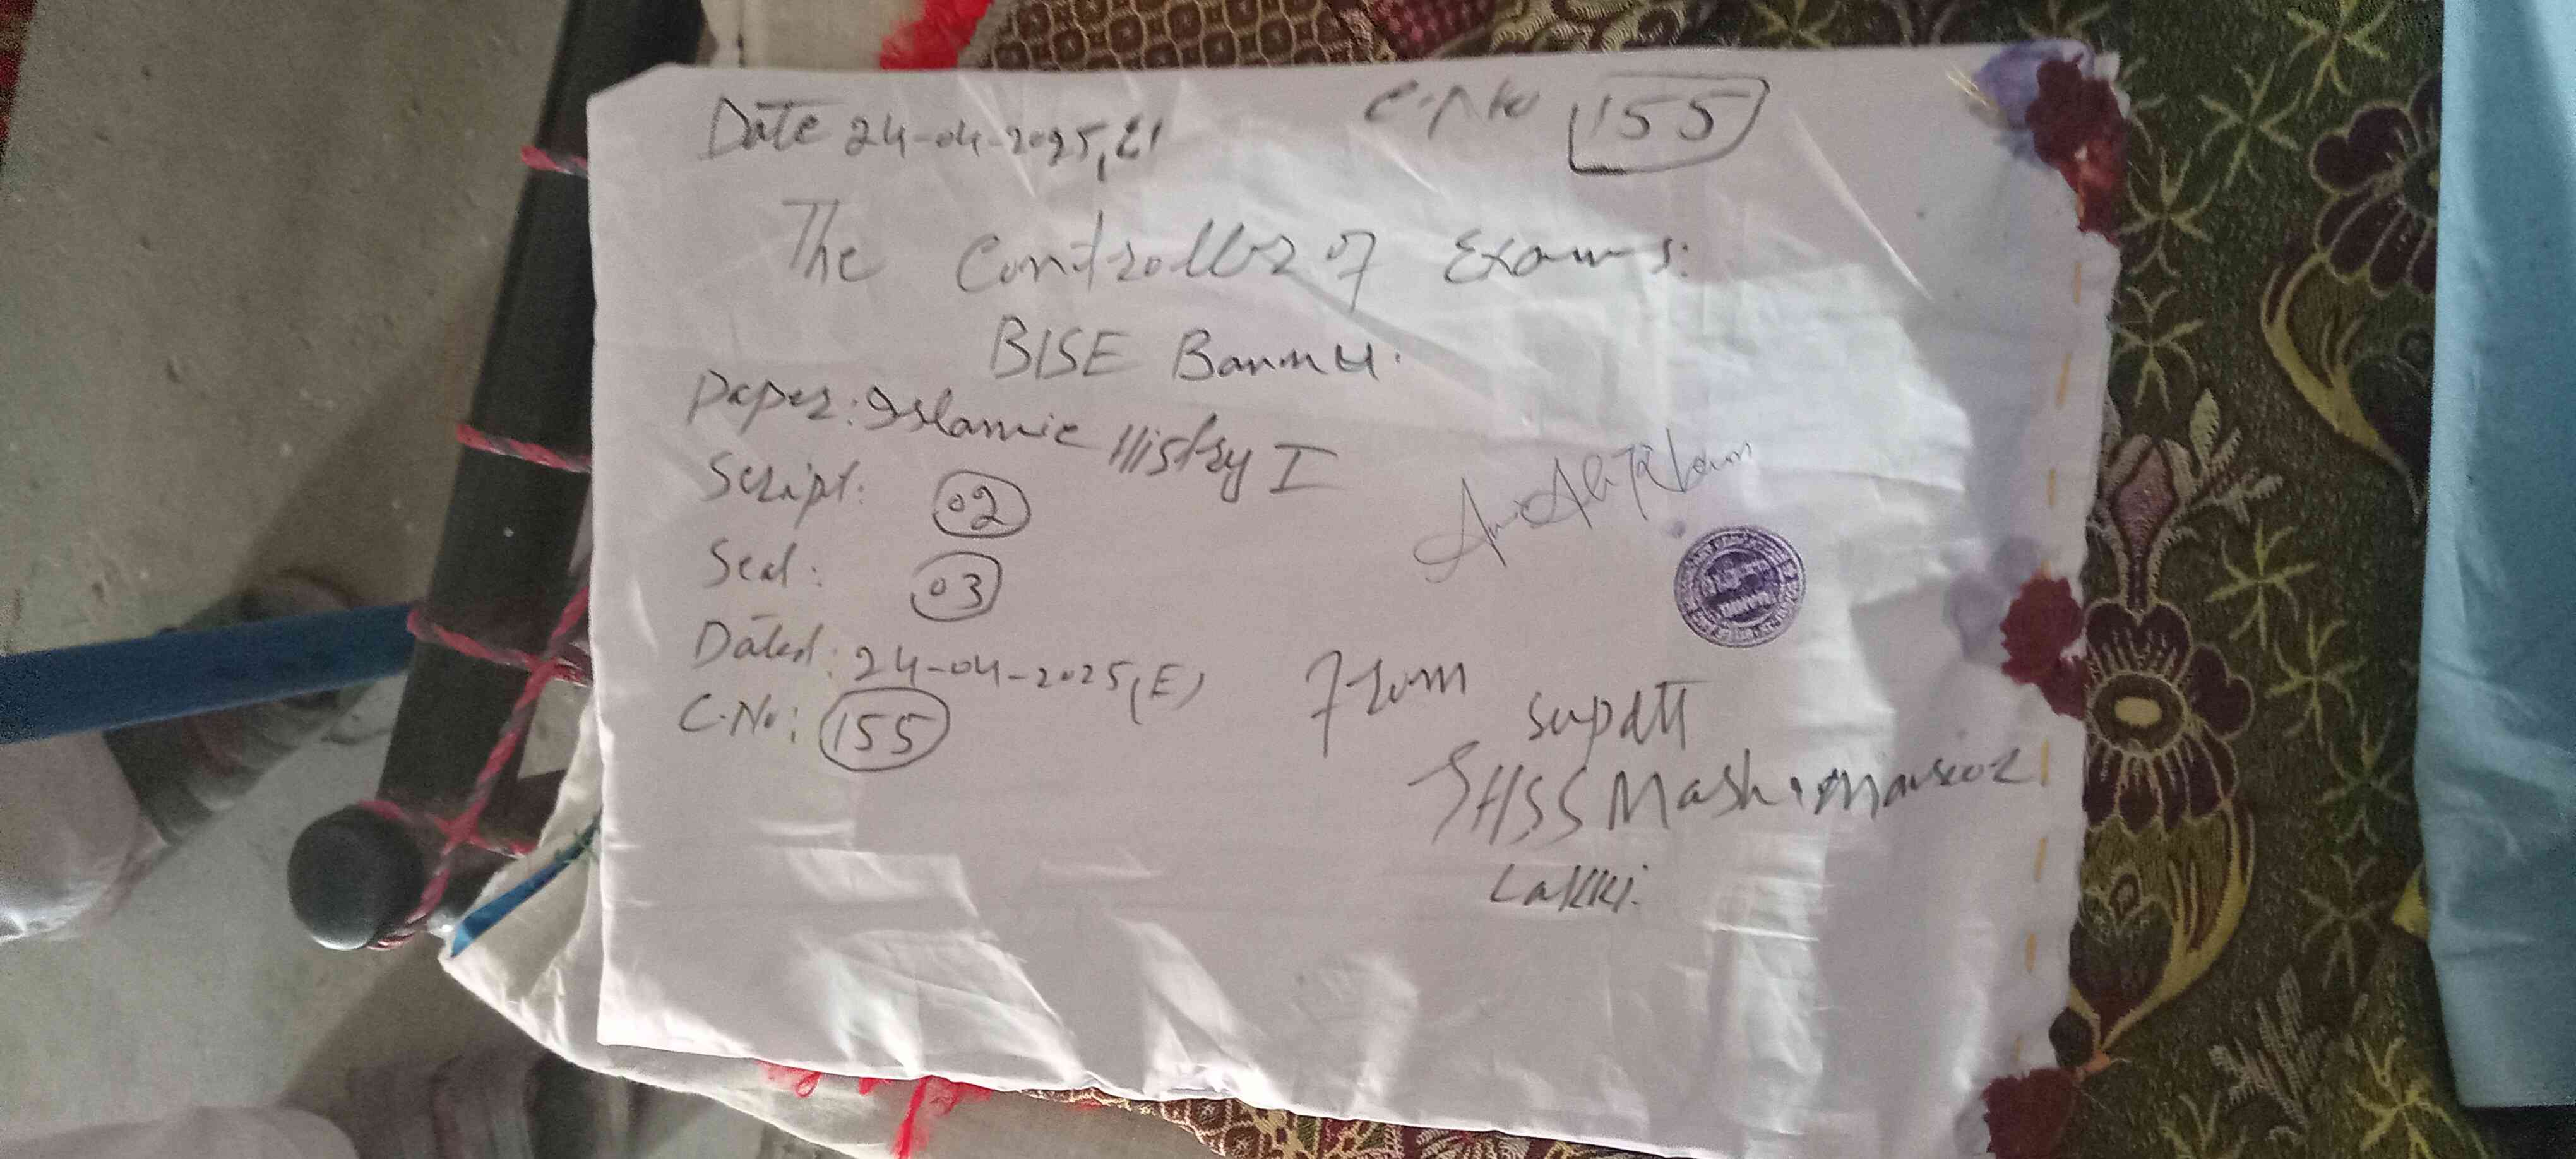 Date 24-04-2025, E1
C.No 155
The Controller of Exams:
BISE Bannu.
Paper: Islamic History I
Script: 02
Seal: 03
Dated: 24-04-2025, (E)
C.No: 155
From
Supdtt
GHSS Mash Mansoor
Lakki.